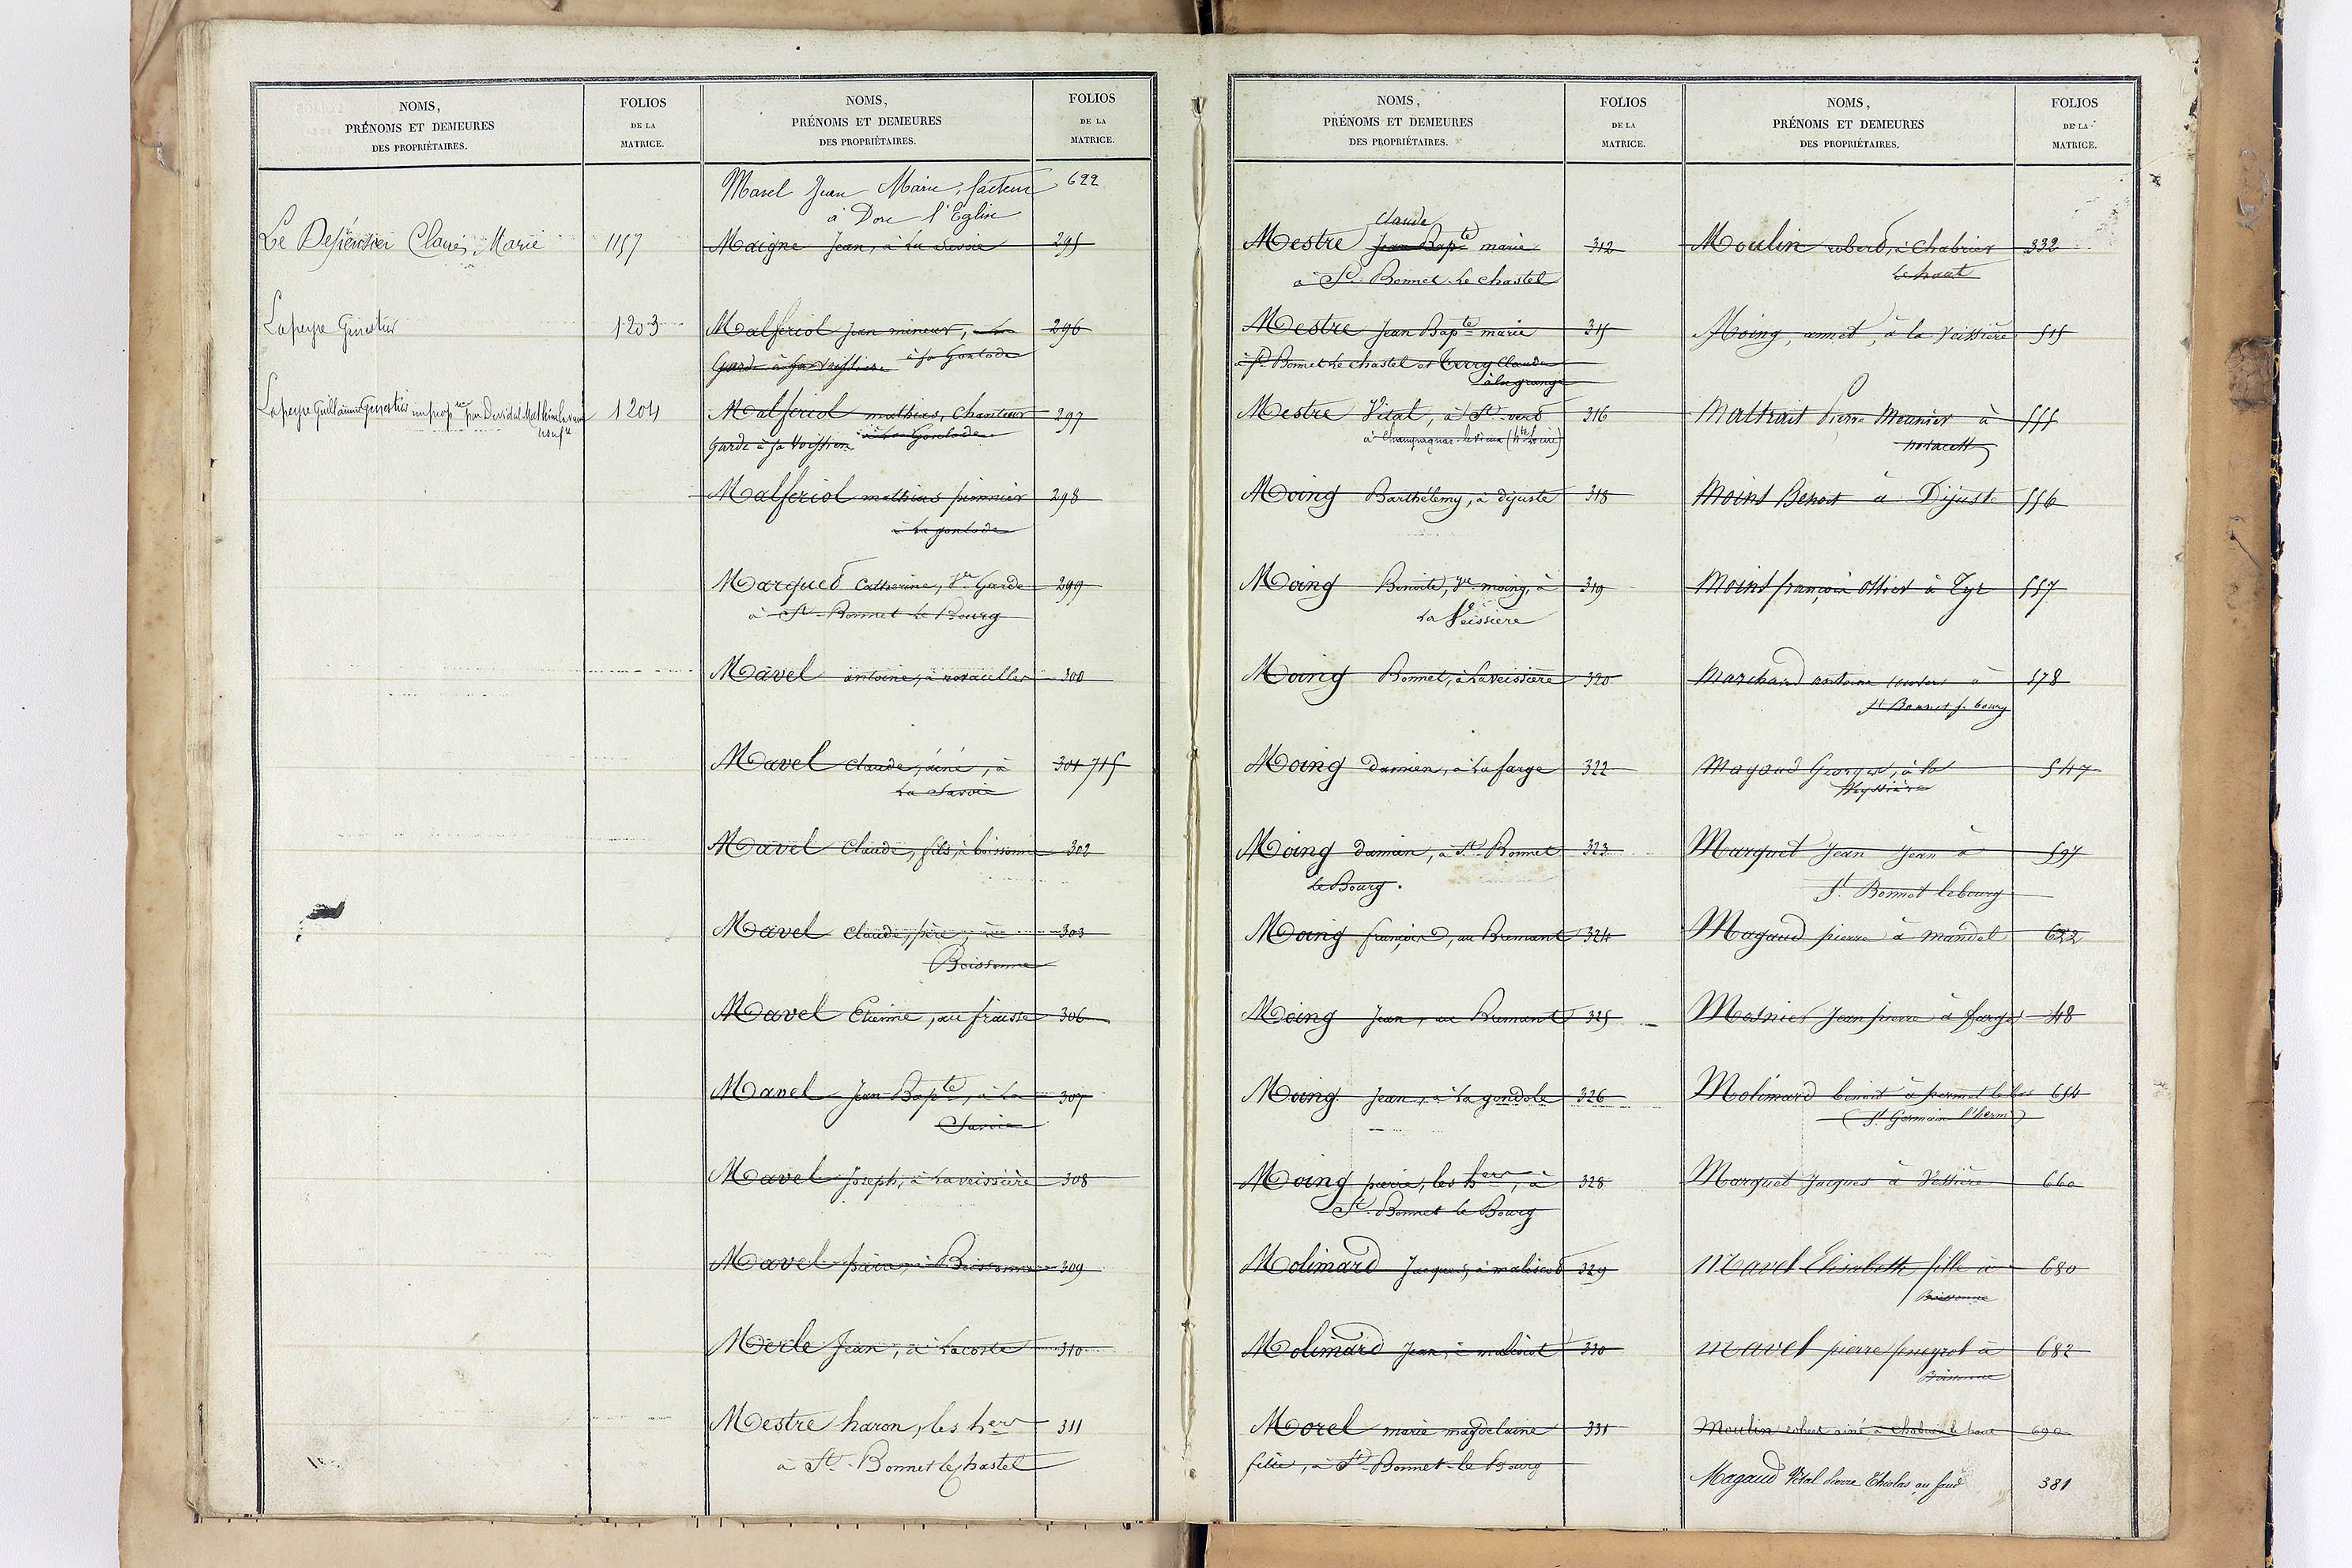 NOMS,
PRÉNOMS ET DEMEURES
DES PROPRIÉTAIRES.
FOLIOS
DE LA
MATRICE.
Le Dépensier Marie 1157
Lapeyre Genestier 1203
Lapeyre Guillaume Genestier 1204
NOMS,
PRÉNOMS ET DEMEURES
DES PROPRIÉTAIRES.
FOLIOS
DE LA
MATRICE.
Mavel Jean Marie, facteur 622
à Dore l'Eglise
Maigne Jean, à La Savoie 295
Malfériol Jean mineur, 296
Garde à la Veissière à la Gonlode
Malfériol mathieu, Chanteur 297
Garde à la Veissière à La Gonlode
Malfériol mathieu pionnier 298
à La gonlode
Marquet Catherine, Ve Garde 299
à St Bonnet le Bourg
Mavel antoine, à novacelles 300
Mavel Claude, aîné, à 301 715
La Savoie
Mavel Claude, fils, à boissonne 302
Mavel Claude, père, à 303
Boissonne
Mavel Etienne, au fraisse 306
Mavel Jean Bapte, à La 307
Savoie
Mavel Joseph, à La veissière 308
Mavel pierre, à Boissonne 309
Merle Jean, à Lacoste 310
Mestre haron, les hers 311
à St Bonnet le chastel
NOMS,
PRÉNOMS ET DEMEURES
DES PROPRIÉTAIRES.
FOLIOS
DE LA
MATRICE.
Claude
Mestre Jean Bapte marie 312
à St Bonnet Le chastel
Mestre Jean Bapte marie 315
à St Bonnet Le chastel et Terry Claude
à la grange
Mestre Vital, à St vert 316
à Champagnac le vieux (hte Loire)
Moing Barthélemy, à dijuste 318
Moing Benoite, Ve moing, à 319
La Veissière
Moing Bonnet, à La veissière 320
Moing damien, à La farge 322
Moing damien, à St Bonnet 323
le Bourg.
Moing françois, au Bremant 324
Moing Jean, au Bremant 325
Moing Jean, à La gondole 326
Moing pierre, les hers, à 328
St Bonnet le Bourg
Molimard Jacques, à maliscot 329
Molimard Jean, à maliscot 330
Morel marie magdelaine 331
fille, à St Bonnet le Bourg
NOMS,
PRÉNOMS ET DEMEURES
DES PROPRIÉTAIRES.
FOLIOS
DE LA
MATRICE.
Moulin robert, à Chabrier 332
le haut
Moing, annet, à la Veissière 515
Maltrait Pierre Meunier à 555
Moins Benoit à Dijuste 556
Moins françois Ollier à Tyr 557
Marchand antoine à 578
St Bonnet l. bourg
Magaud Georges, à la 547
Veyssière
Marquet Jean Jean à 597
St Bonnet lebourg
Magaud pierre à mandel 622
Mosnier Jean pierre à farges 48
Molimard benoit à permet le bas 654
(St Germain l'herm)
Marquet Jacques à Vessière 660
Mavel Elisabeth fille à 680
Boissonne
Mavel pierre feneyrol à 682
Boissonne
Moulin robert ainé à chabrier le haut 690
Magaud Vital Pierre au faud 381